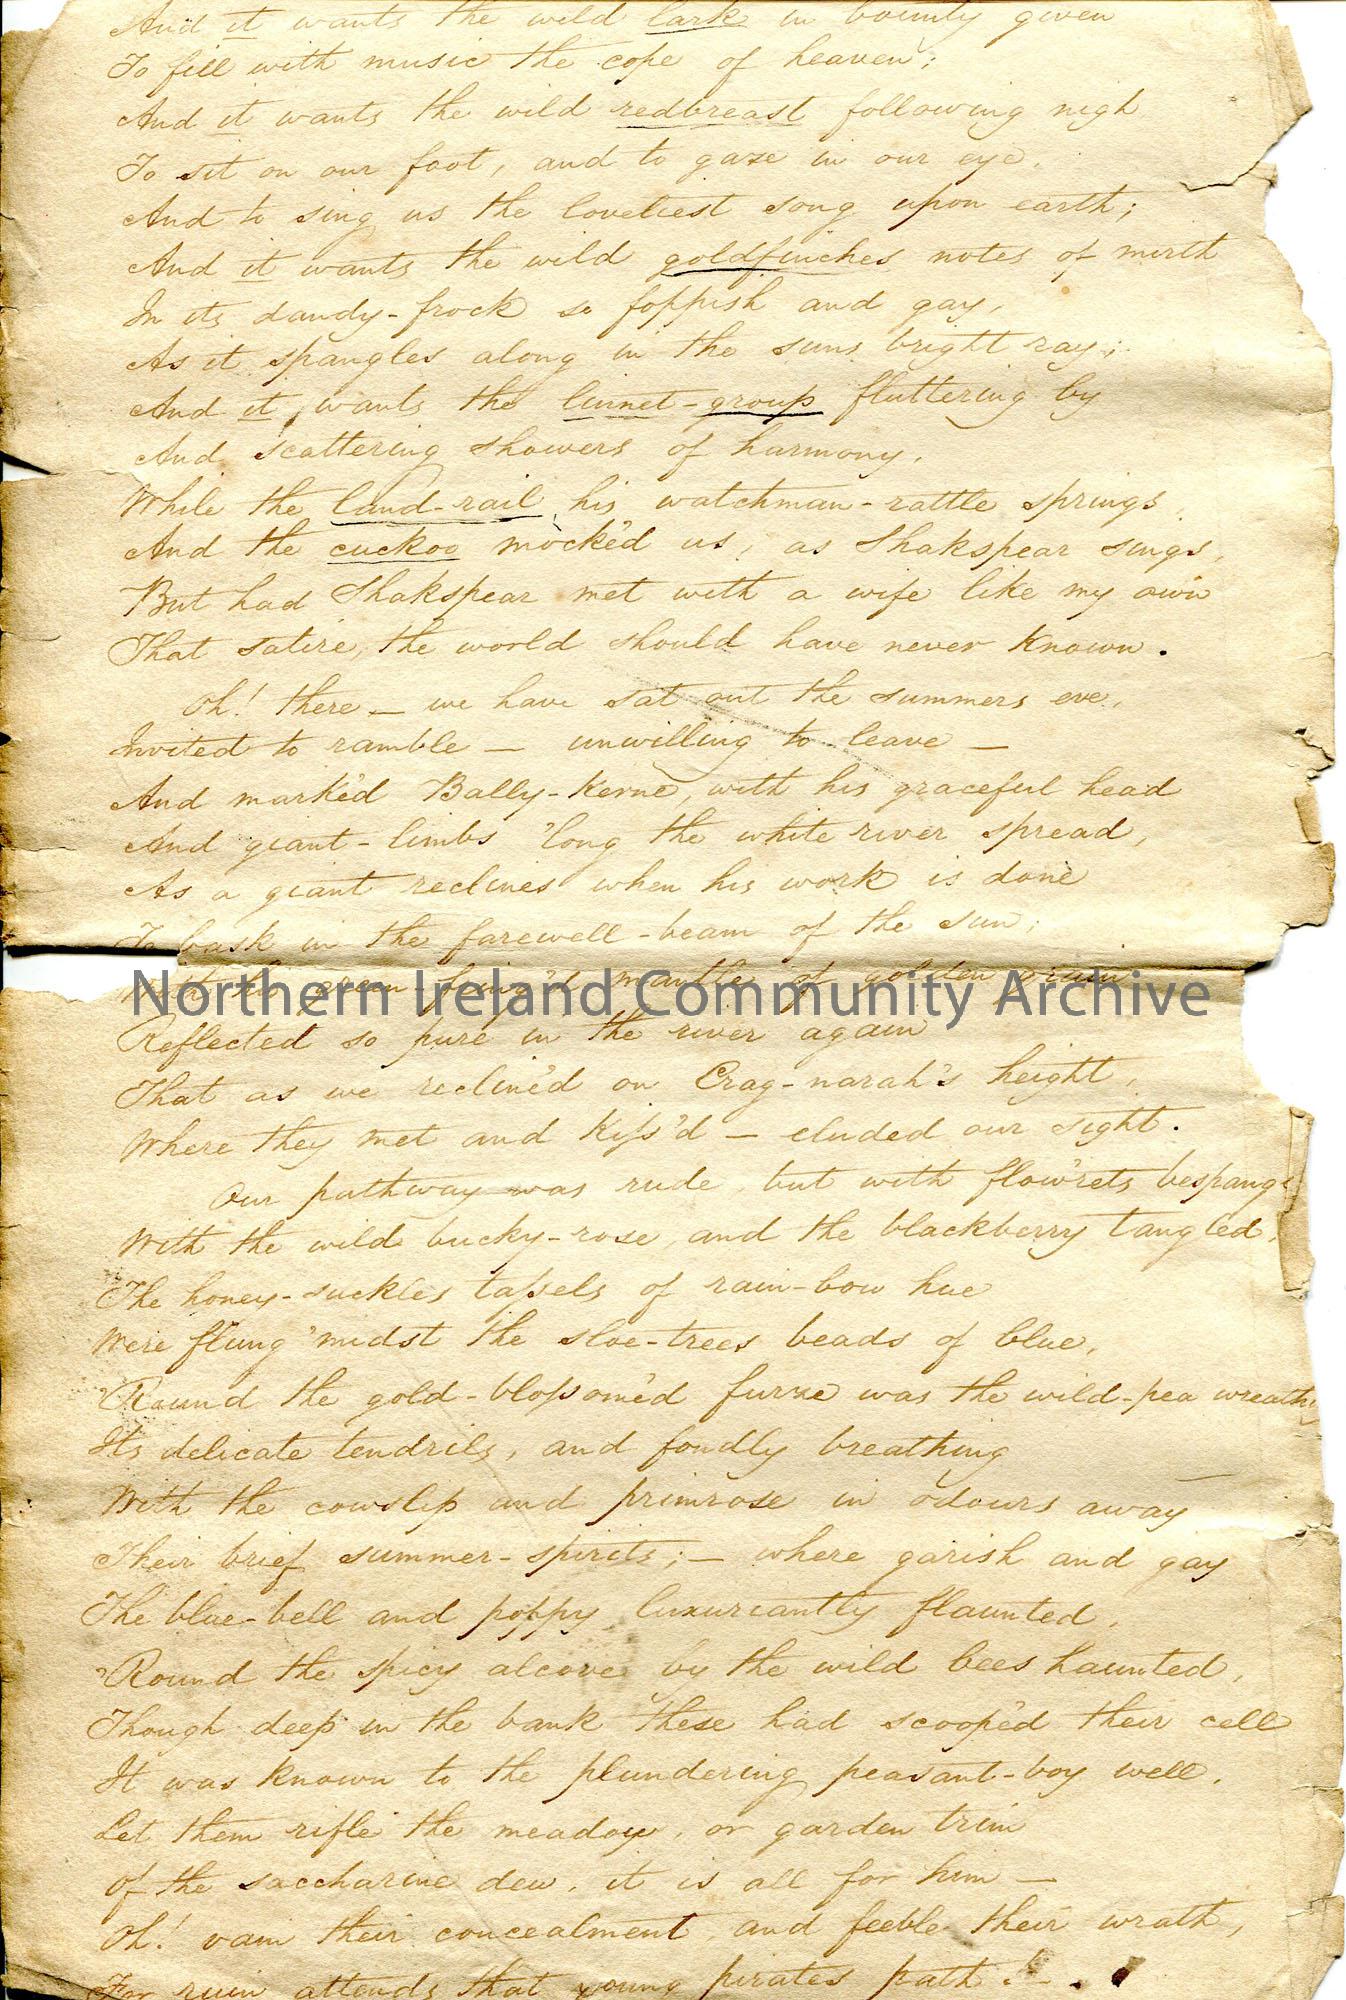 And it wants the wild lark in bounty given
To fill with music the cope of heaven;
And it wants the wild redbreast following nigh
To sit on our foot, and to gaze in our eye,
And to sing us the loveliest song upon earth;
And it wants the wild goldfinches notes of mirth
In its dandy-frock so foppish and gay,
As it spangles along in the suns bright ray;
And it, wants the linnet-group fluttering by
And scattering showers of harmony,
While the land-rail, his watchman-rattle springs
And the cuckoo mock'd us, as Shakspear sings,
But had Shakspear met with a wife like my own
That satire, the world should have never known.
Oh! there — we have sat out the summers eve,
Invited to ramble — unwilling to leave —
And mark'd Bally-Kerne, with his graceful head
And giant-limbs 'long the white river spread,
As a giant reclines when his work is done
To bask in the farewell-beam of the sun;
With his green-fring'd mantle of golden grain
Northern Ireland Community Archive
Reflected so pure in the river again
That as we reclin'd on Crag-narah's height,
Where they met and kiss'd — eluded our sight.
Our pathway was rude, but with flow'rets bespang
With the wild bucky-rose, and the blackberry tangled,
The honey-suckles tassels of rain-bow hue
Were flung 'midst the sloe-trees beads of blue,
'Round the gold-blossom'd furze was the wild-pea wreath
Its delicate tendrils, and fondly breathing
With the cowslip and primrose in odours away
Their brief summer-spirits; — where garish and gay
The blue-bell and poppy luxuriantly flaunted,
'Round the spicy alcove by the wild bees haunted,
Though deep in the bank these had scoop'd their cell
It was known to the plundering peasant-boy well,
Let them rifle the meadow, or garden trim
Of the saccharine dew, it is all for him —
Oh! vain their concealment and feeble their wrath,
For ruin attends that young pirates path!